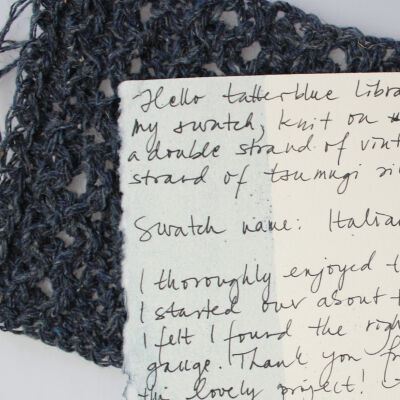 Hello tatterblue Libra
my swatch, knit on
a double strand of vint
strand of tsumugi si
Swatch name: Italian
I thoroughly enjoyed t
I started over about t
I felt I found the righ
gauge. Thank you fr
this lovely project!